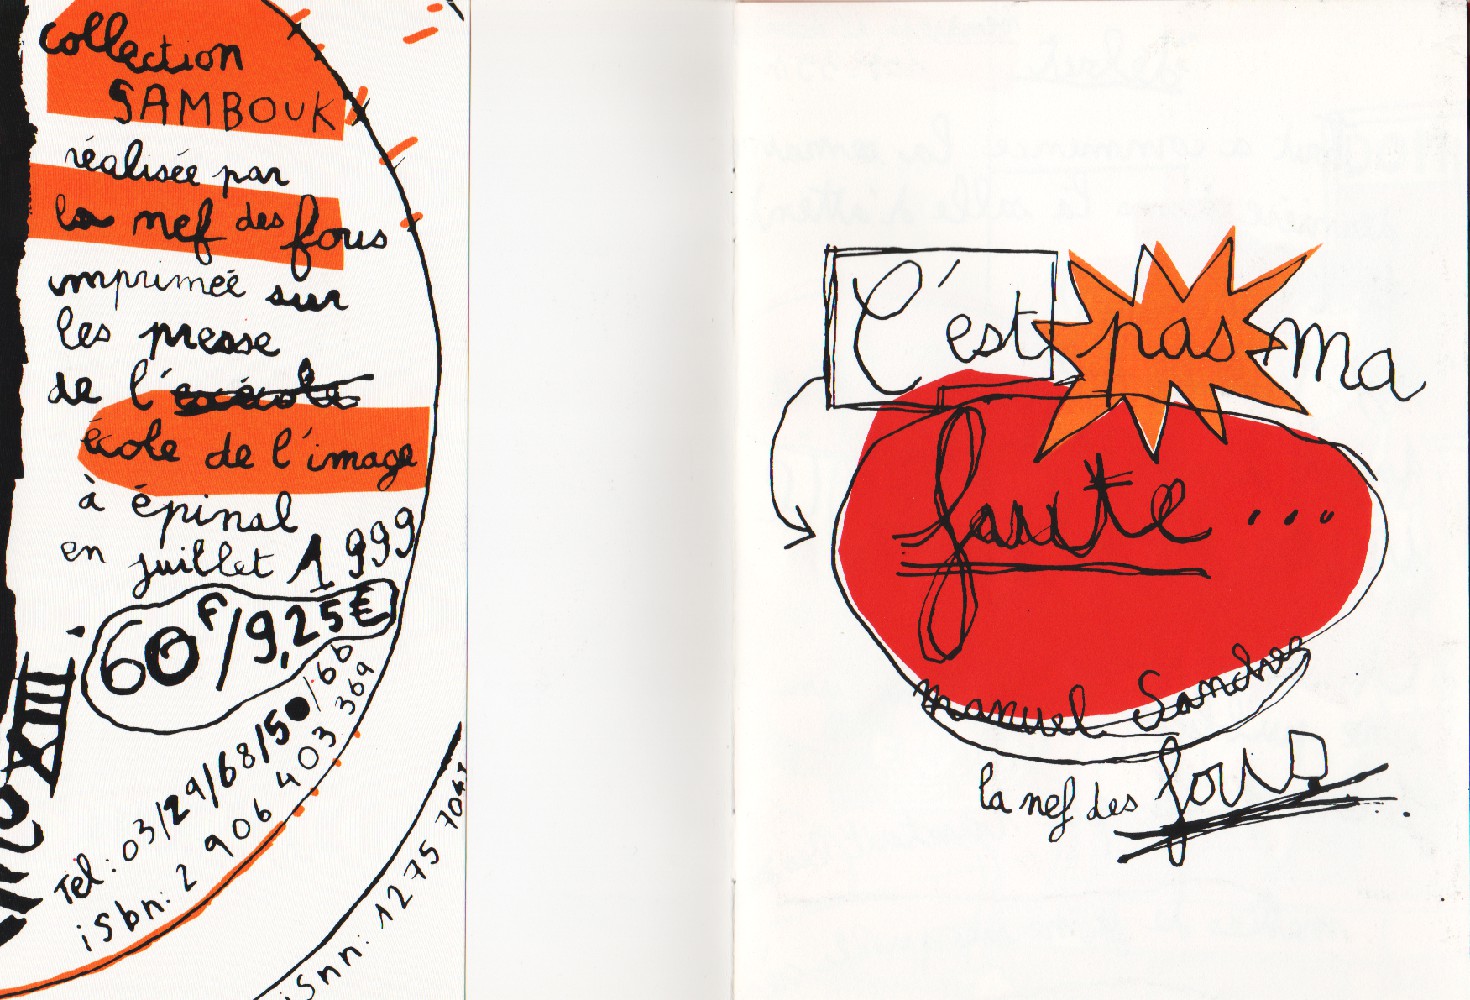 collection
SAMBOUK
réalisée par
la nef des fous
imprimée sur
les presse
de l'
école de l'image
à épinal
en juillet 1999
60F/9,25€
XIII
Tel: 03/29/68/50/66
isbn: 2 906 403 369
isnn: 1275 704
C'est pas ma
faute...
manuel Sanchez
la nef des fous